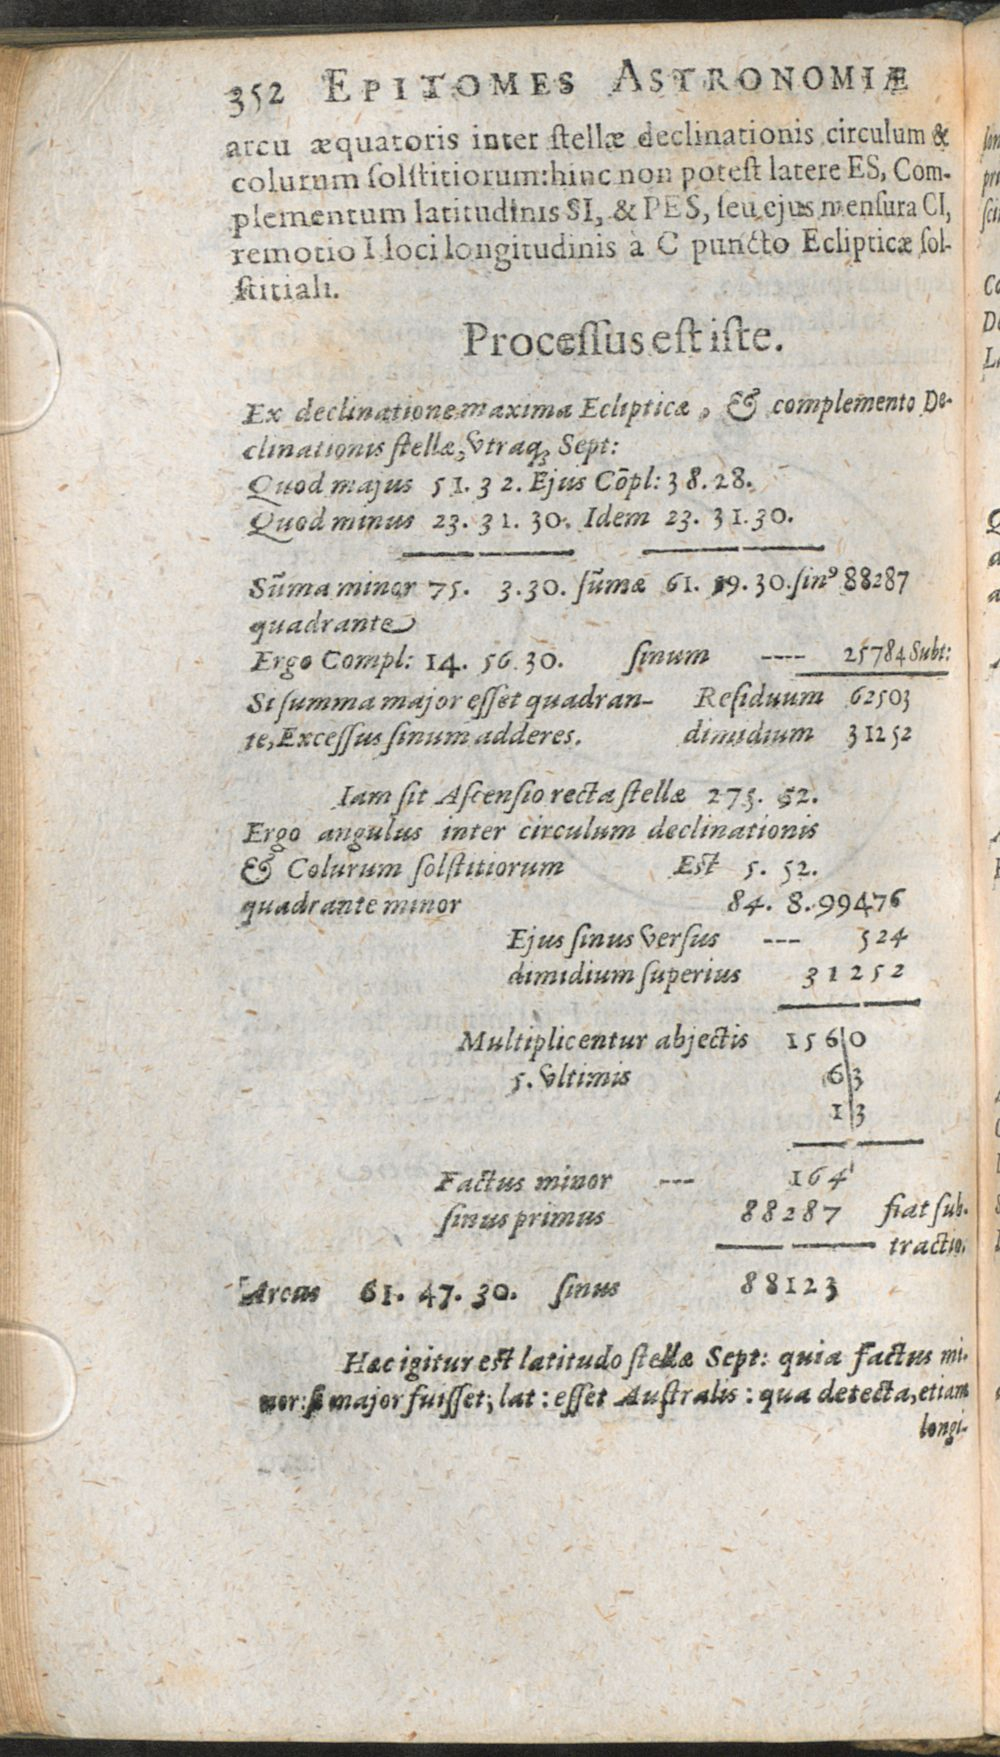 352 EPITOMES ASTRONOMIÆ
arcu æquatoris inter ſtellæ declinationis circulum &
colurum ſolſtitiorum: hinc non poteſt latere ES, Com-
plementum latitudinis SI, & PES, ſeu ejus menſura CI,
remotio I loci longitudinis à C puncto Eclipticæ ſol-
ſtitiali.
Proceſſus eſt iſte.
Ex declinatione maxima Eclipticæ, & complemento De-
clinationis ſtellæ, Vtraq; Sept:
Quod majus 51. 32. Ejus Cōpl: 38. 28.
Quod minus 23. 31. 30. Idem 23. 31. 30.
Sūma minor 75. 3. 30. ſūmæ 61. 59. 30. ſinꝰ 88287
quadrante
Ergo Compl: 14. 56. 30. ſinum ---- 25784 Subt:
Si ſumma major eſſet quadran- Reſiduum 62503
te, Exceſſus ſinum adderes. dimidium 31252
Iam ſit Aſcenſio recta ſtellæ 275. 52.
Ergo angulus inter circulum declinationis
& Colurum ſolſtitiorum Eſt 5. 52.
quadrante minor 84. 8. 99476
Ejus ſinus Verſus --- 524
dimidium ſuperius 31252
Multiplicentur abjectis 156|0
5. Vltimis 6|3
1|3
Factus minor --- 164
ſinus primus 88287 fiat ſub-
tractio.
Arcus 61. 47. 30. ſinus 88123
Hæc igitur eſt latitudo ſtellæ Sept: quia factus mi-
nor: ſi major fuiſſet; lat: eſſet Auſtralis: qua detecta, etiam
longi-